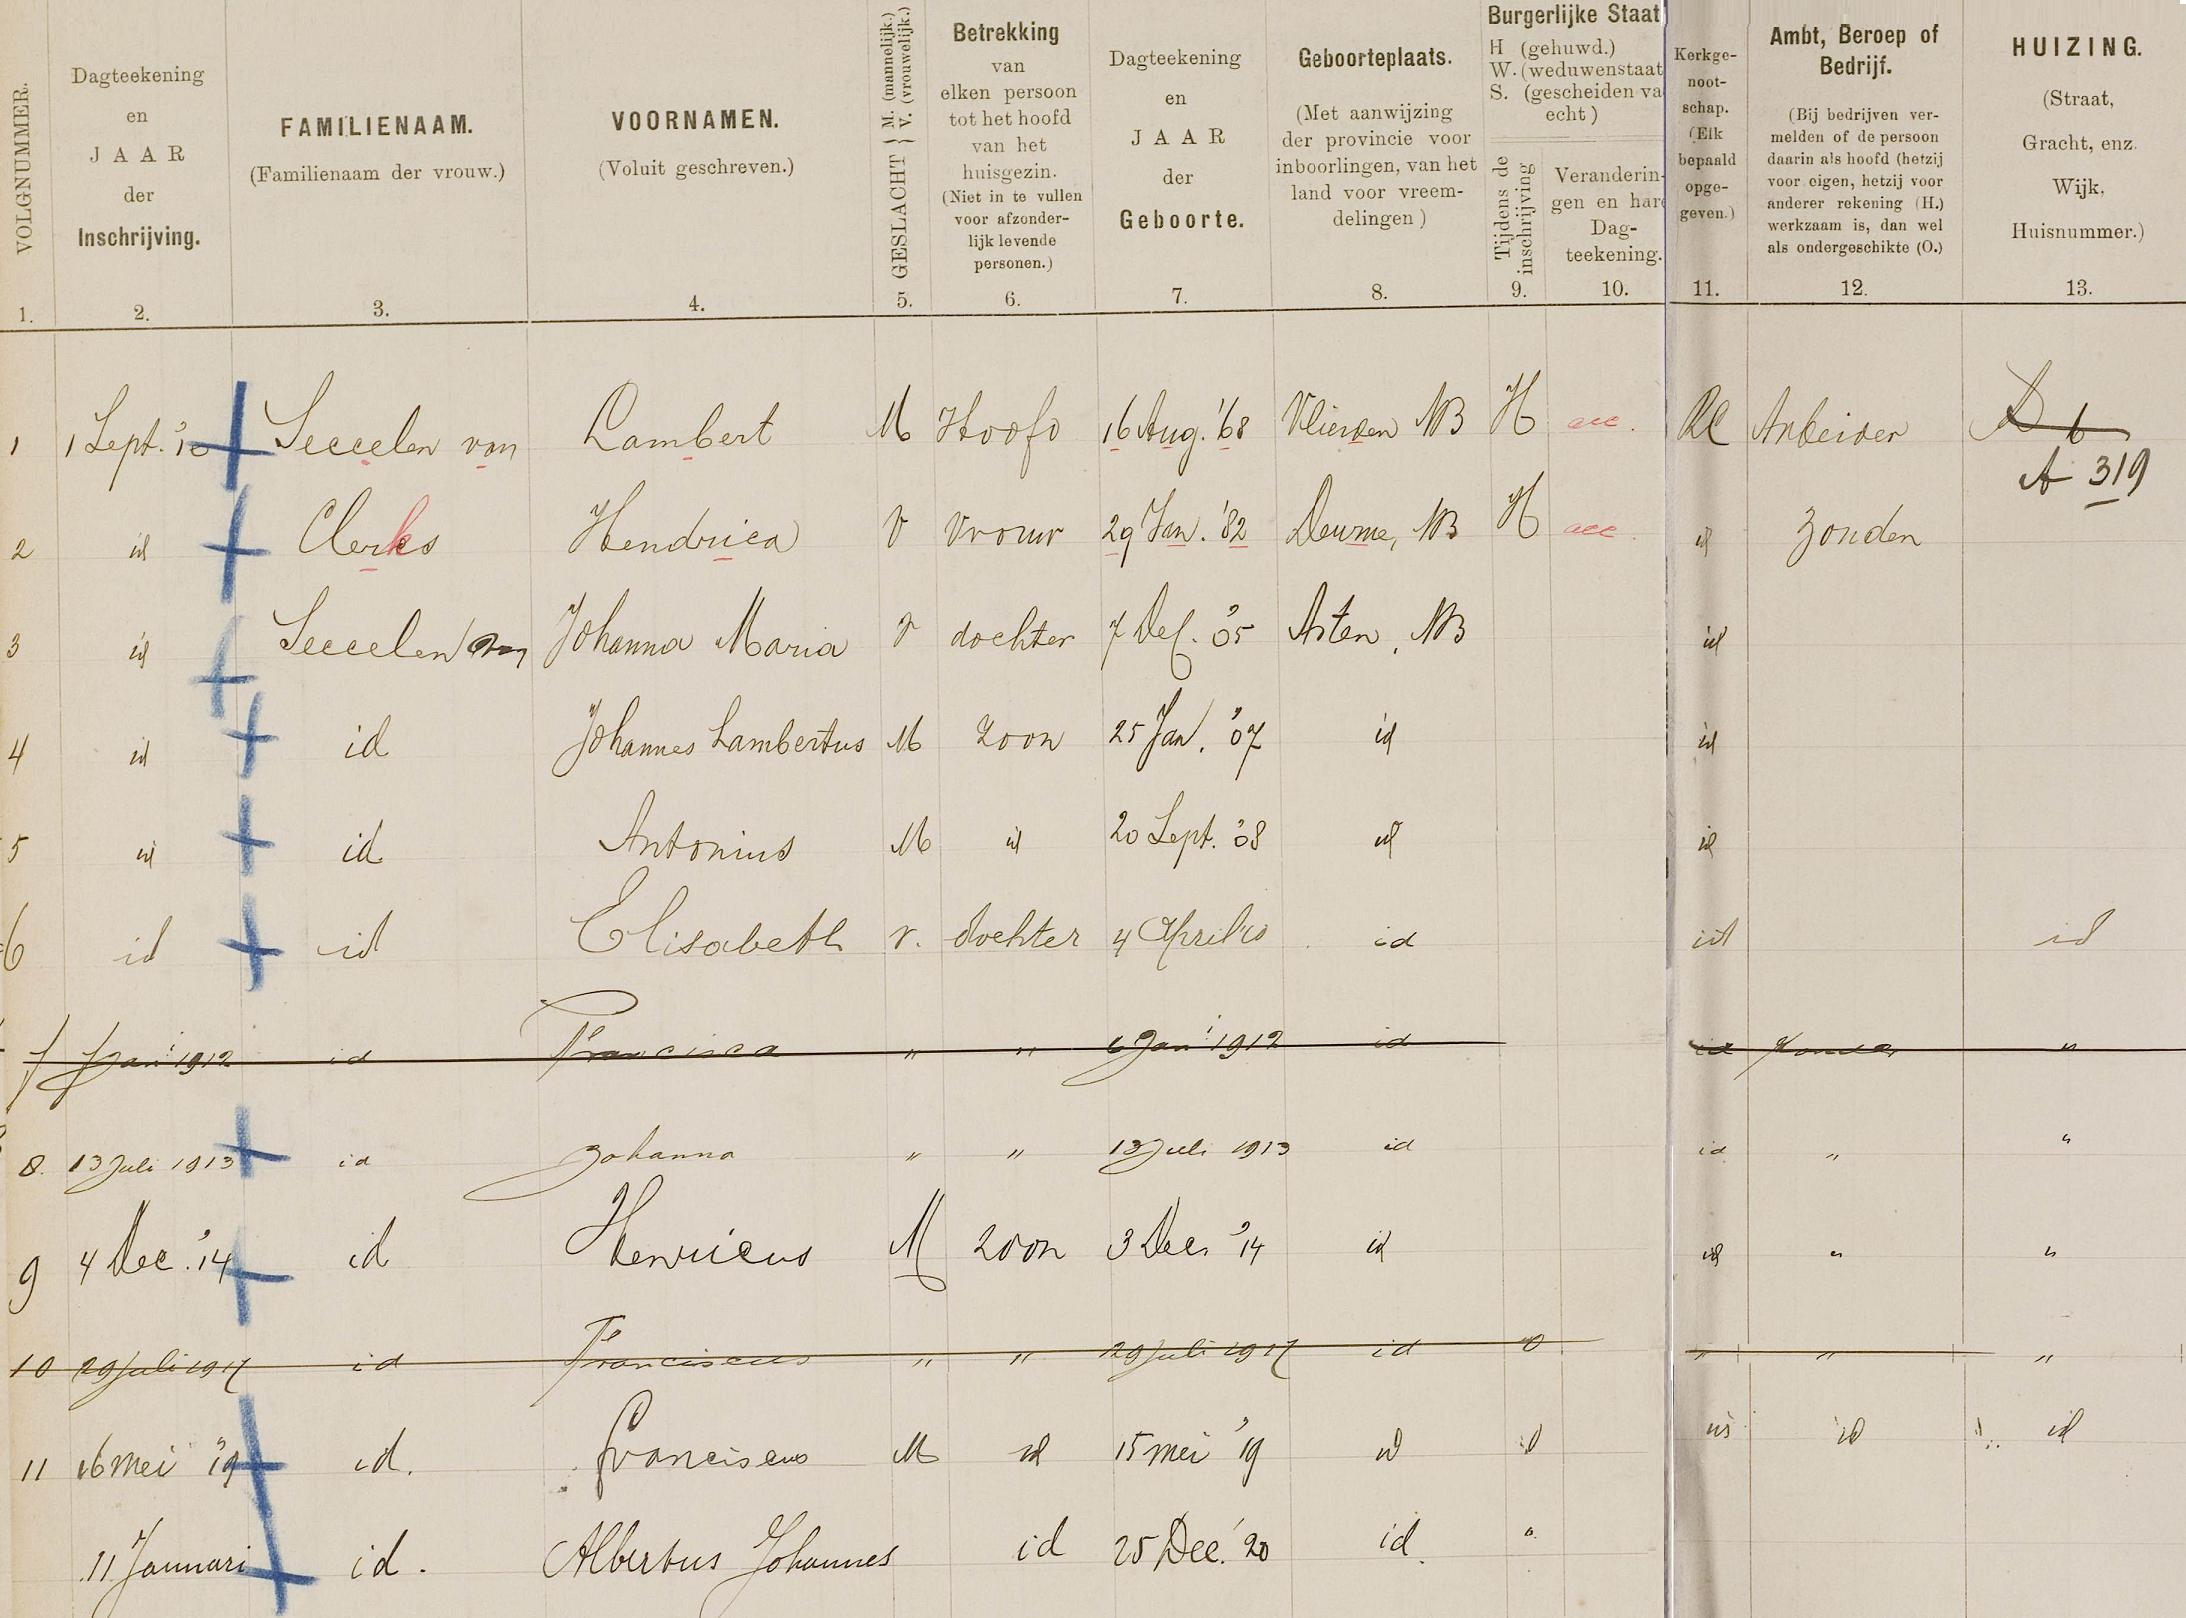 VOLGNUMMER.
Dagteekening
en
JAAR
der
Inschrijving.
FAMILIENAAM.
(Familienaam der vrouw.)
VOORNAMEN.
(Voluit geschreven.)
GESLACHT { M. (mannelijk.) V. (vrouwelijk.)
Betrekking
van
elken persoon
tot het hoofd
van het
huisgezin.
(Niet in te vullen
voor afzonder-
lijk levende
personen.)
Dagteekening
en
JAAR
der
Geboorte.
Geboorteplaats.
(Met aanwijzing
der provincie voor
inboorlingen, van het
land voor vreem-
delingen)
Burgerlijke Staat
H (gehuwd.)
W. (weduwenstaat
S. (gescheiden va
echt)
Tijdens de
inschrijving
Veranderin-
gen en hare
Dag-
teekening.
Kerkge-
noot-
schap.
(Elk
bepaald
opge-
geven.)
Ambt, Beroep of
Bedrijf.
(Bij bedrijven ver-
melden of de persoon
daarin als hoofd (hetzij
voor eigen, hetzij voor
anderer rekening (H.)
werkzaam is, dan wel
als ondergeschikte (O.)
HUIZING.
(Straat,
Gracht, enz.
Wijk,
Huisnummer.)
1. 2. 3. 4. 5. 6. 7. 8. 9. 10. 11. 12. 13.
1 1 Sept. '10 Seccelen van Lambert M Hoofd 16 Aug. '68 Vlierden NB H acc. RC Arbeider D 6
A 319
2 id Clerks Hendrica V Vrouw 29 Jan. '82 Deurne, NB H acc. id zonder
3 id Seccelen van Johanna Maria V dochter 7 Dec. '05 Asten, NB id
4 id id Johannes Lambertus M zoon 25 Jan. '07 id id
5 id id Antonius M id 20 Sept. '08 id id
6 id id Elisabeth v. dochter 4 April '10 id id id
7 7 Jan 1912 id Francisca " " 6 Jan 1912 id id zonder "
8. 13 Juli 1913 id Johanna " " 13 Juli 1913 id id " "
9 4 Dec. '14 id Henricus M zoon 3 Dec. '14 id id " "
10 29 Juli 1917 id Franciscus " " 29 Juli 1917 id " " "
11 16 mei '19 id. Franciscus M id 15 mei '19 id id id id id
11 Januari id. Albertus Johannes id 25 Dec. '20 id. "